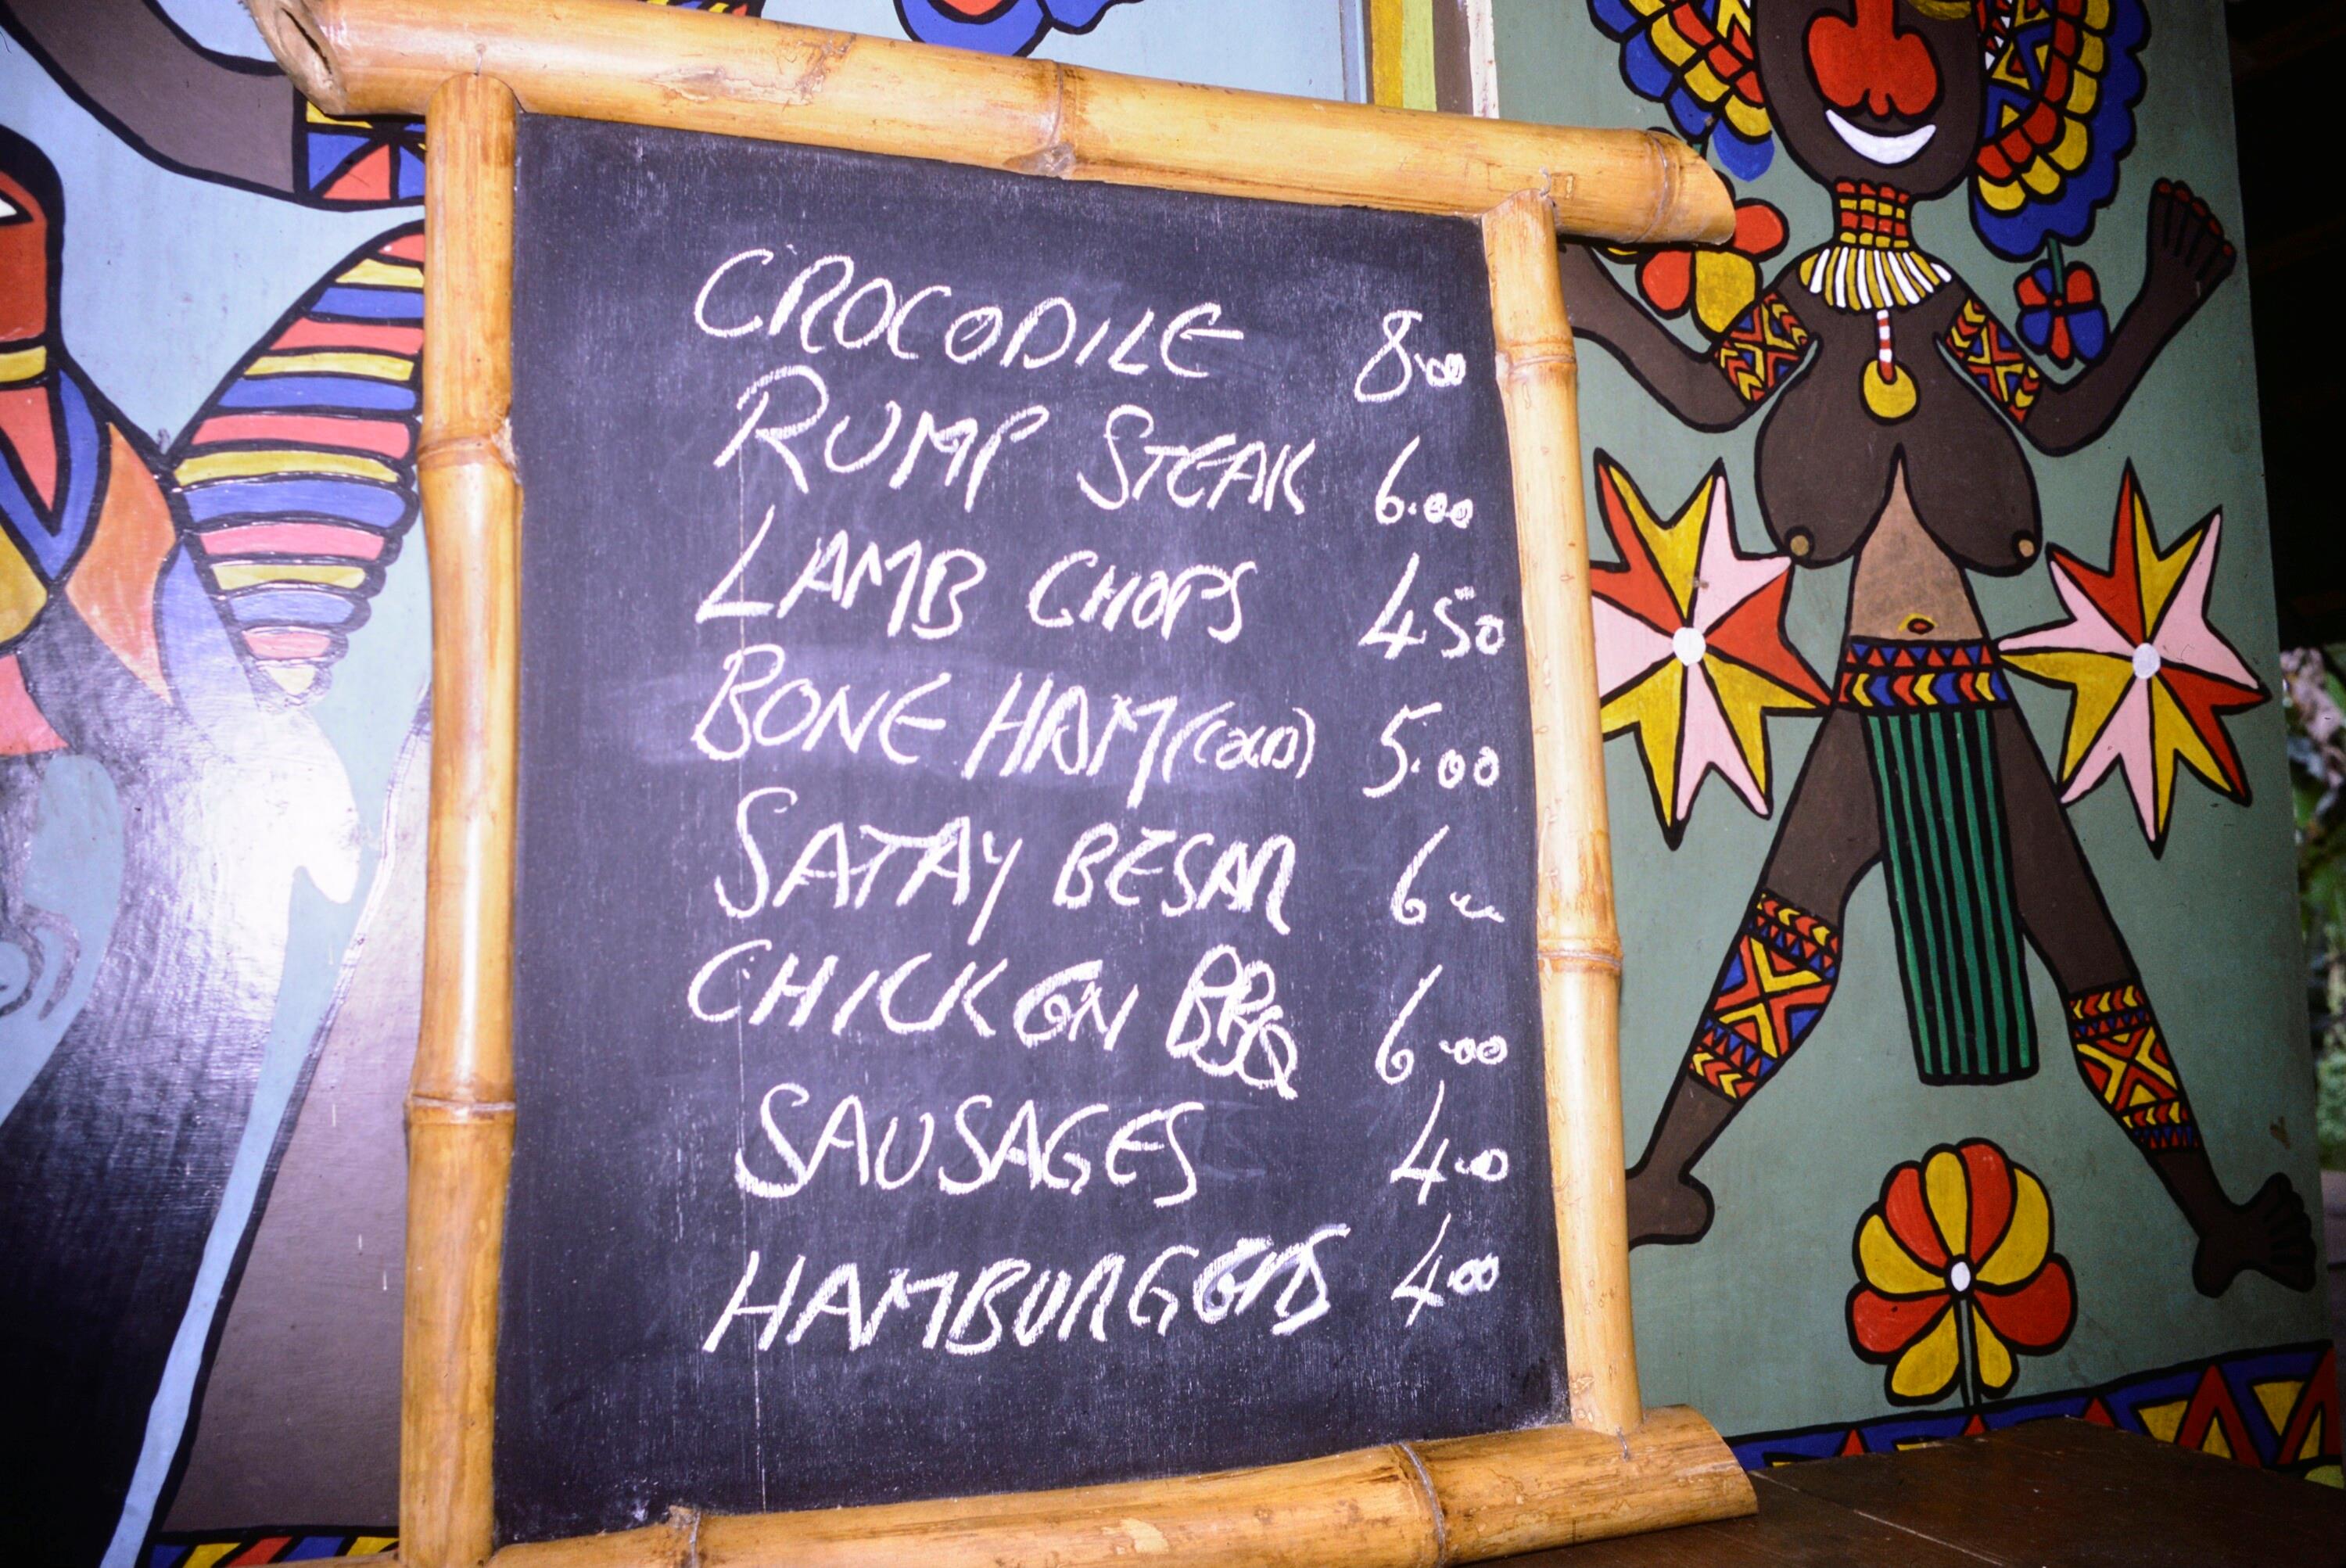 CROCODILE 8.00
RUMP STEAK 6.00
LAMB CHOPS 4.50
BONE HAM (COLD) 5.00
SATAY BESAR 6
CHICKEN BBQ 6.00
SAUSAGES 4.00
HAMBURGERS 4.00